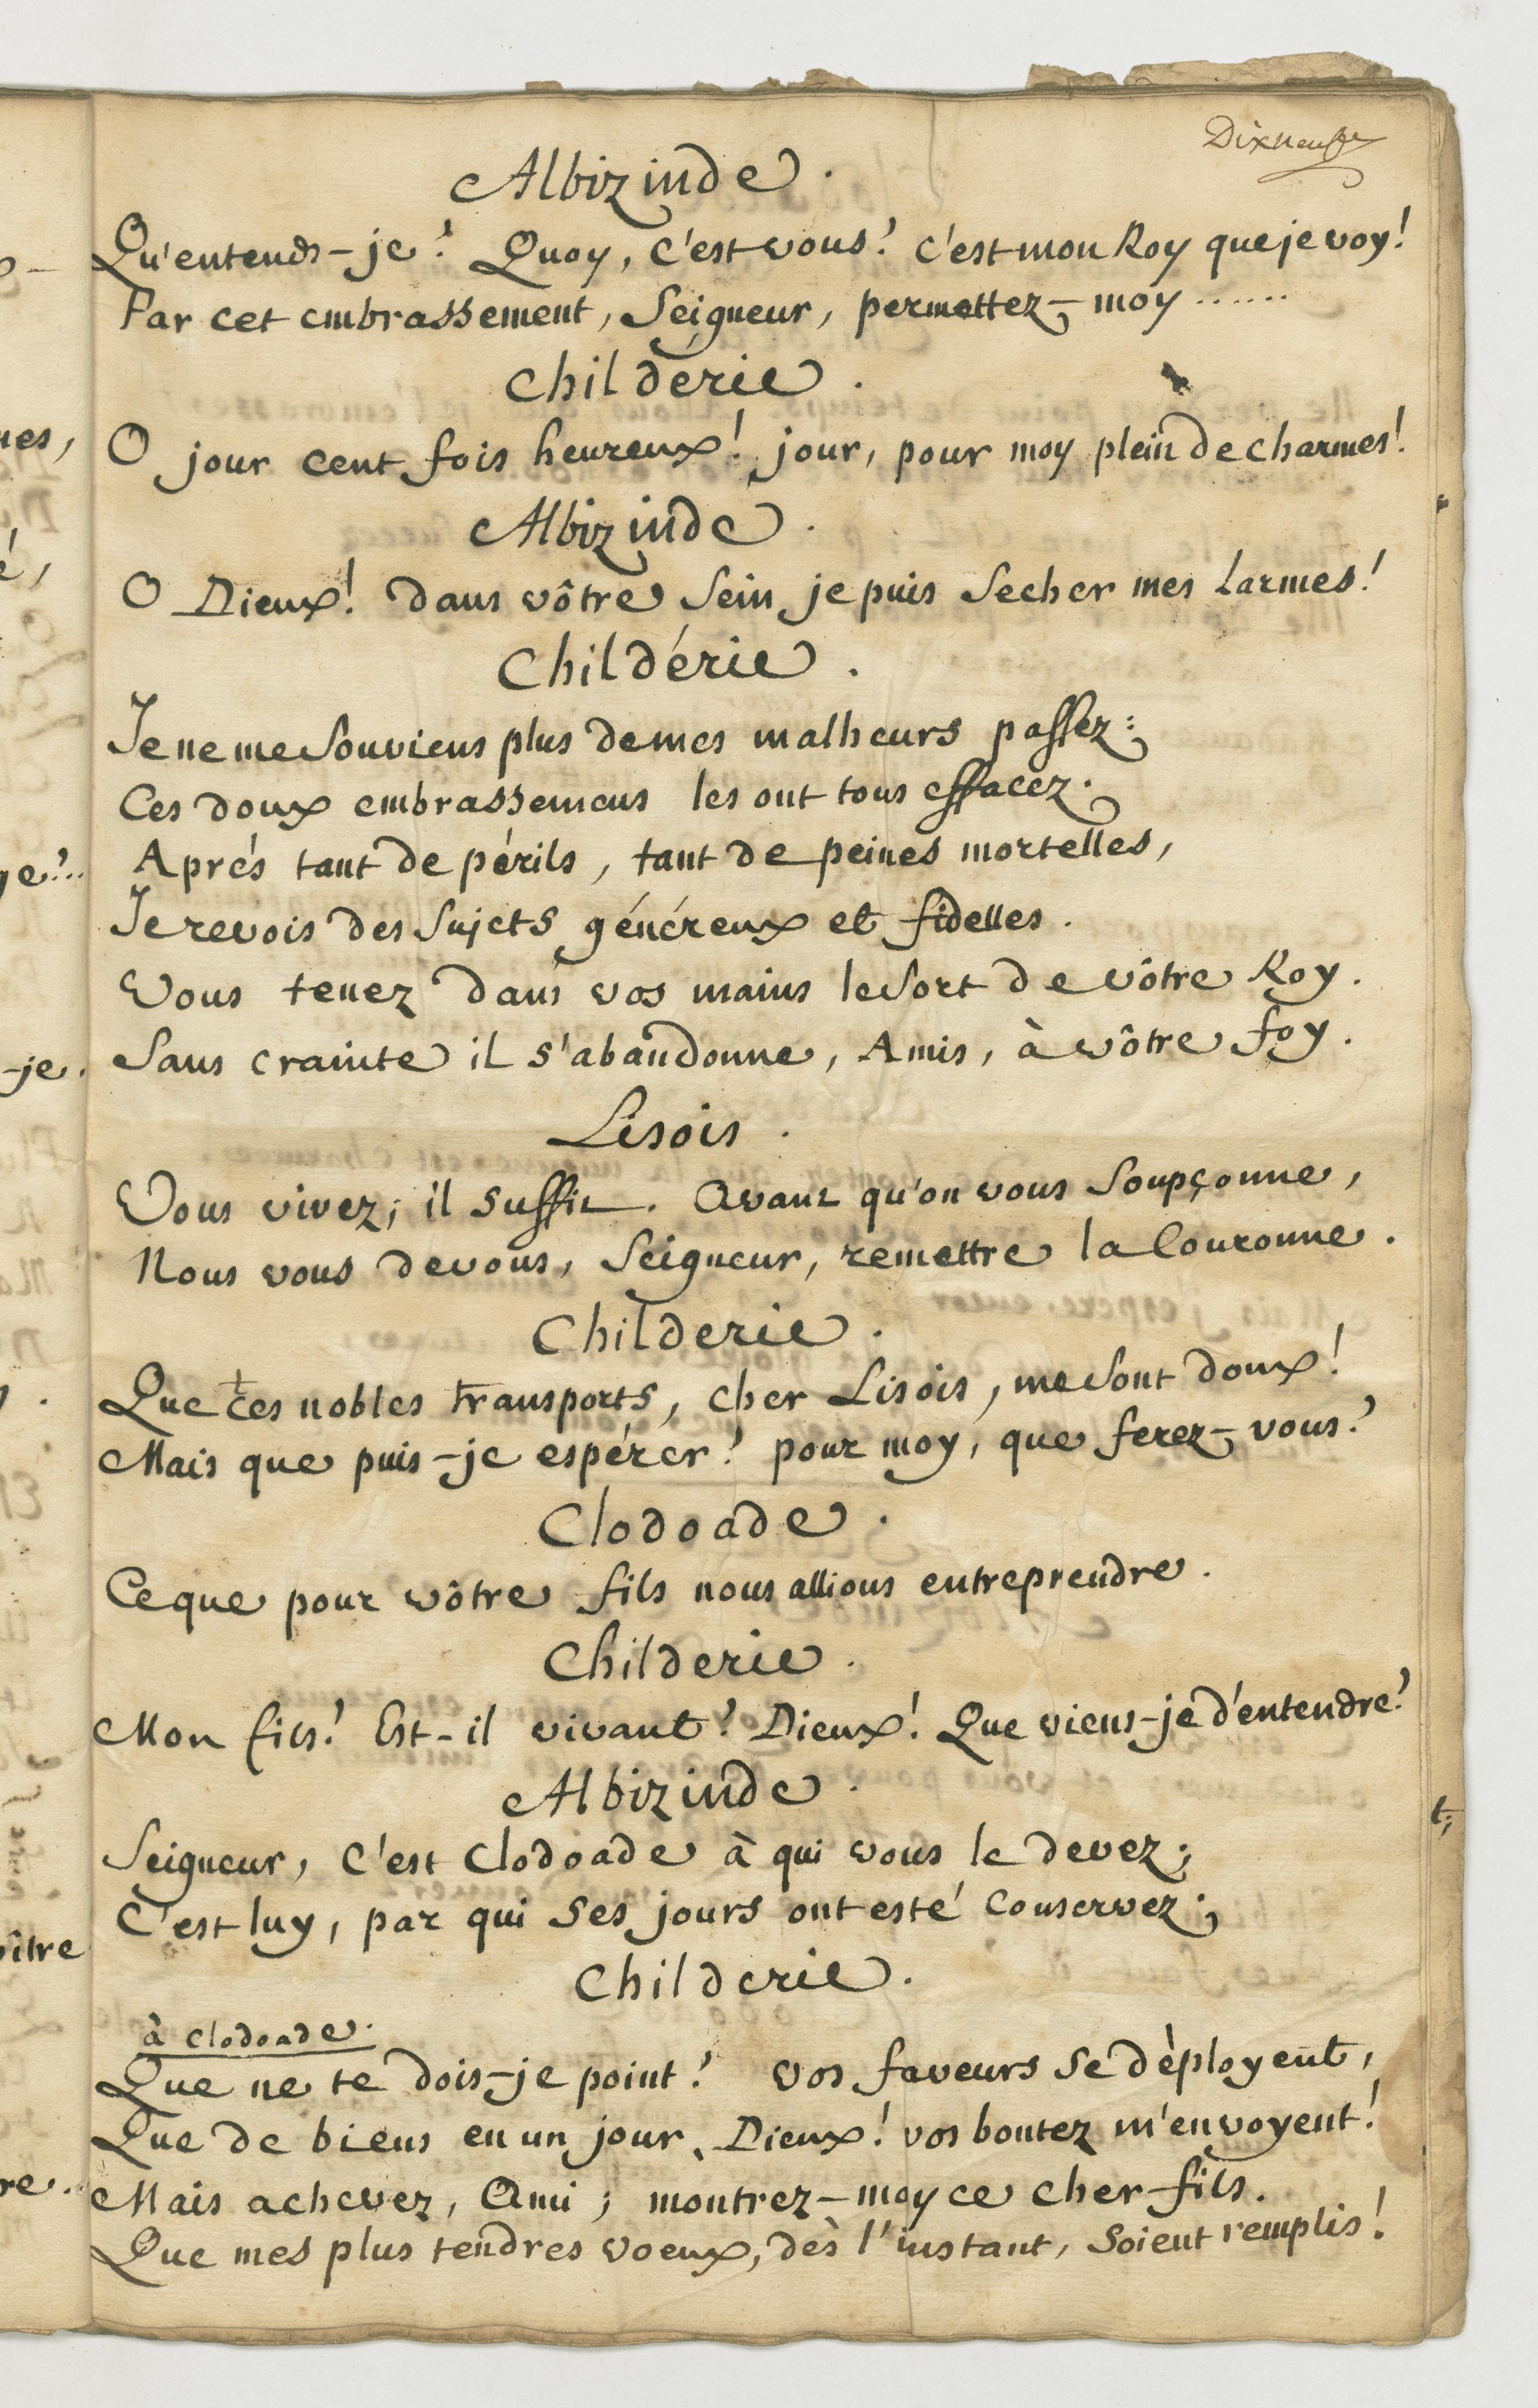 Dixneufve
Albizinde.
Qu'entends-je? Quoy, c'est vous? c'est mon Roy que je voy!
Par cet embrassement, Seigneur, permettez-moy......
Childéric.
O jour cent fois heureux! jour, pour moy plein de charmes!
Albizinde.
O Dieux! dans vôtre sein je puis secher mes larmes!
Childéric.
Je ne me souviens plus de mes malheurs passez:
Ces doux embrassemens les ont tous effacez.
Aprés tant de périls, tant de peines mortelles,
Je revois des sujets généreux et fidelles.
Vous tenez dans vos mains le sort de vôtre Roy.
Sans crainte il s'abandonne, Amis, à vôtre foy.
Lisois.
Vous vivez; il suffit. Avant qu'on vous soupçonne,
Nous vous devons, Seigneur, remettre la Couronne.
Childeric.
Que ces nobles transports, cher Lisois, me sont doux!
Mais que puis-je espérer? pour moy, que ferez-vous?
Clodoade.
Ce que pour vôtre fils nous allions entreprendre.
Childeric.
Mon fils! Est-il vivant? Dieux! Que viens-je d'entendre?
Albizinde.
Seigneur, c'est Clodoade à qui vous le devez;
C'est luy, par qui ses jours ont esté conservez;
Childeric.
à Clodoade.
Que ne te dois-je point? vos faveurs se déployent,
Que de biens en un jour, Dieux! vos bontez m'envoyent!
Mais achevez, Ami; montrez-moy ce cher fils.
Que mes plus tendres voeux, dès l'instant, soient remplis!